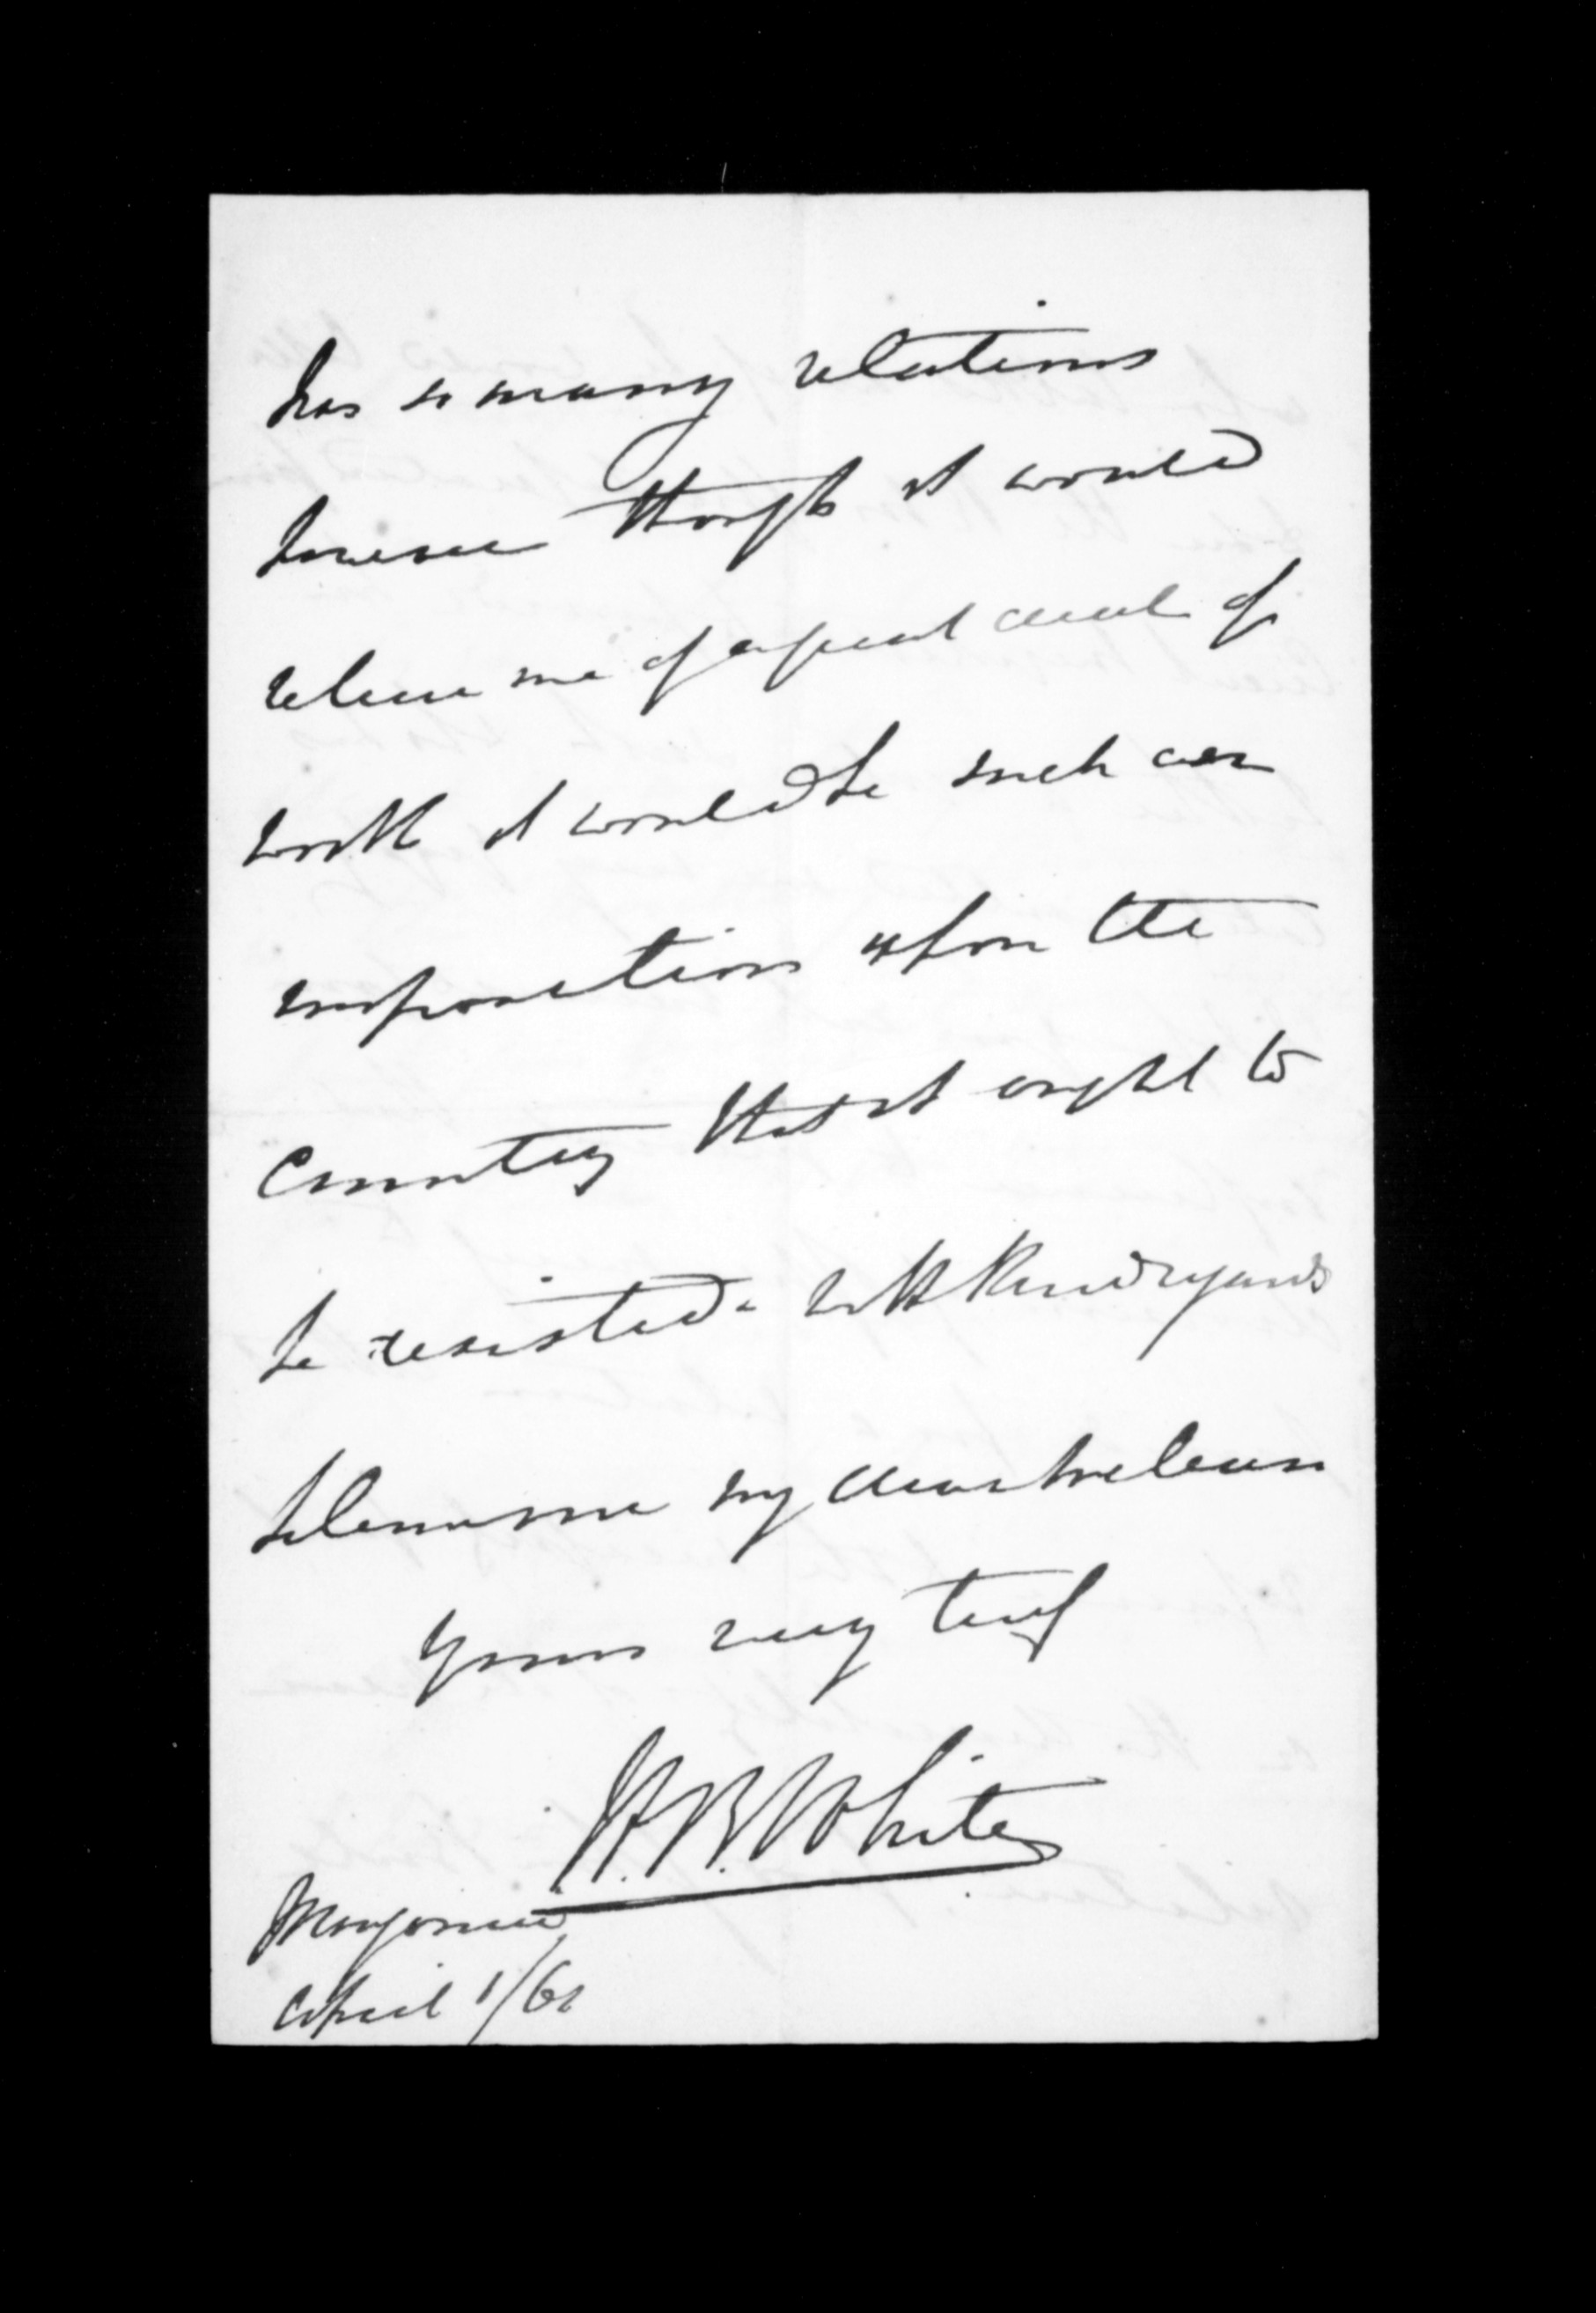 has so many relations
however though it would
relieve me of a great deal of
work it would be such an
imposition upon the
Country that it ought to
be resisted. With Kind regards
believe me my dear McLean
Yours very truly
H. B. White
April 1/61